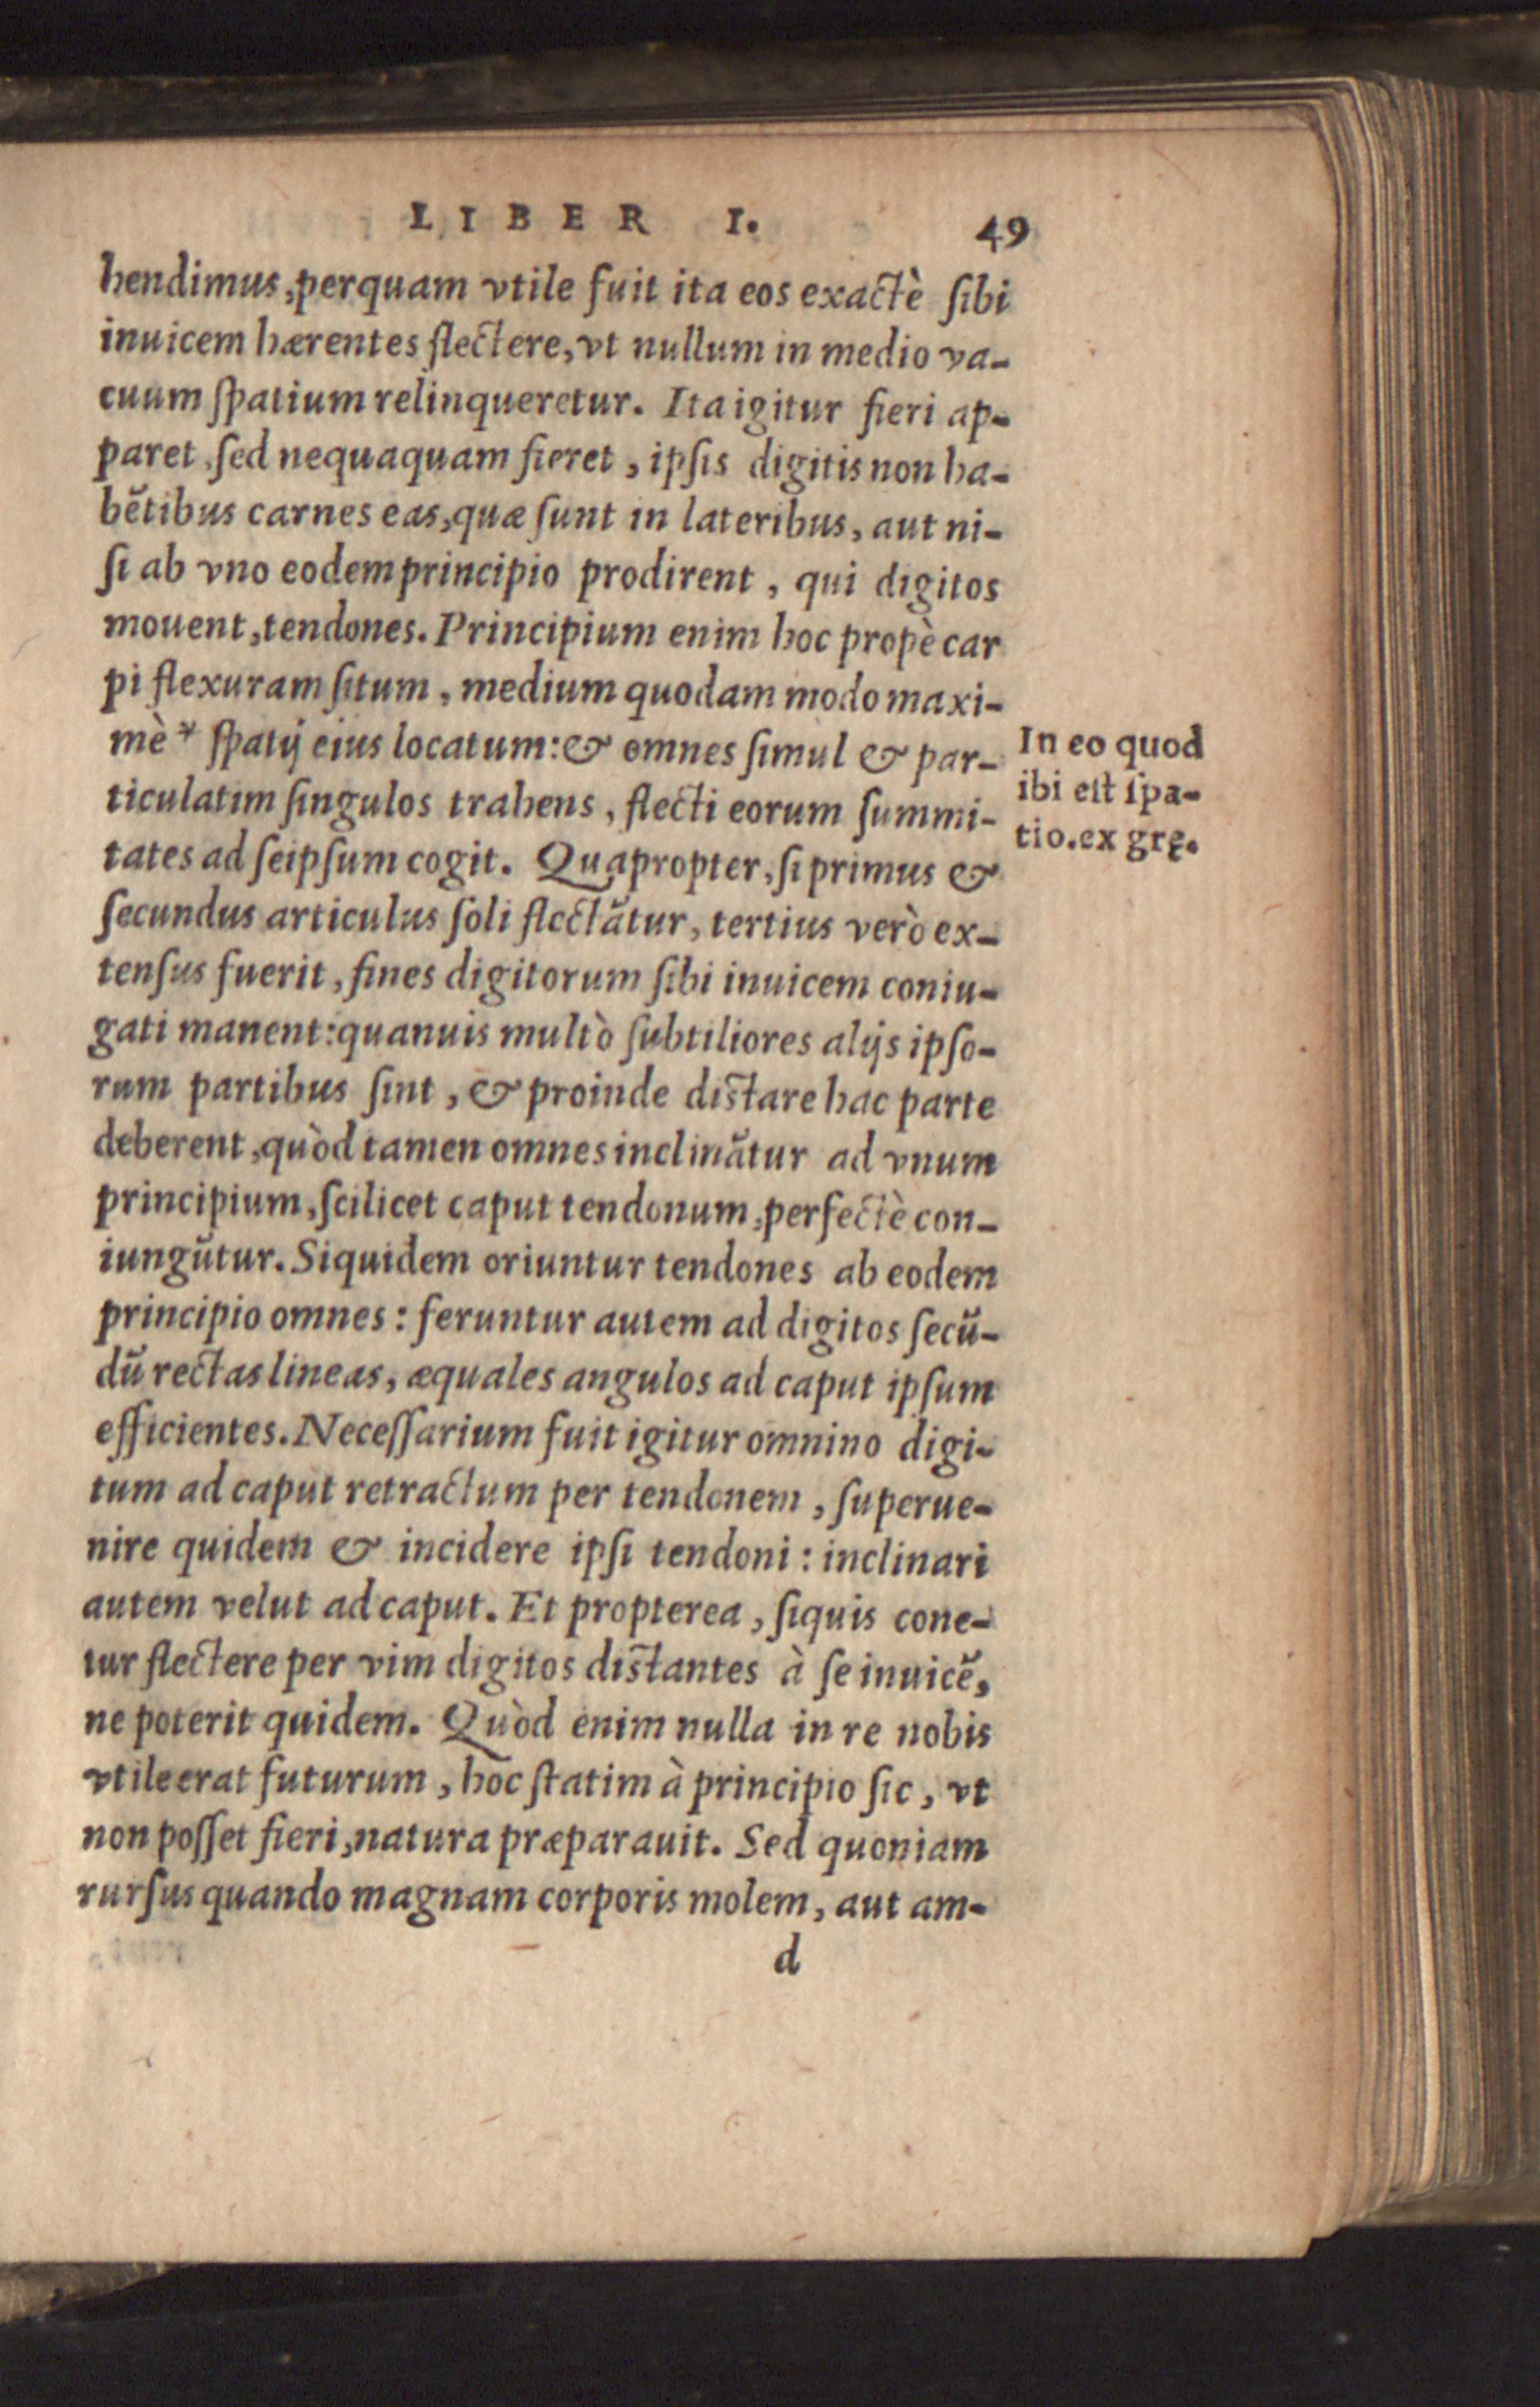 LIBER I. 49
hendimus, perquam vtile fuit ita eos exactè ſibi
inuicem hærentes flectere, vt nullum in medio va-
cuum ſpatium relinqueretur. Ita igitur fieri ap-
paret, ſed nequaquam fieret, ipſis digitis non ha-
bẽtibus carnes eas, quæ ſunt in lateribus, aut ni-
ſi ab vno eodem principio prodirent, qui digitos
mouent, tendones. Principium enim hoc propè car
pi flexuram ſitum, medium quodam modo maxi-
mè * ſpatij eius locatum: & omnes ſimul & par-
ticulatim ſingulos trahens, flecti eorum ſummi-
tates ad ſeipſum cogit. Quapropter, ſi primus &
ſecundus articulus ſoli flectãtur, tertius verò ex-
tenſus fuerit, fines digitorum ſibi inuicem coniu-
gati manent: quanuis multò ſubtiliores alijs ipſo-
rum partibus ſint, & proinde diſtare hac parte
deberent, quòd tamen omnes inclinãtur ad vnum
principium, ſcilicet caput tendonum, perfectè con-
iungũtur. Siquidem oriuntur tendones ab eodem
principio omnes: feruntur autem ad digitos ſecũ-
dũ rectas lineas, æquales angulos ad caput ipſum
efficientes. Neceſſarium fuit igitur omnino digi-
tum ad caput retractum per tendonem, ſuperue-
nire quidem & incidere ipſi tendoni: inclinari
autem velut ad caput. Et propterea, ſiquis cone-
tur flectere per vim digitos diſtantes à ſe inuicẽ,
ne poterit quidem. Quòd enim nulla in re nobis
vtile erat futurum, hoc ſtatim à principio ſic, vt
non poſſet fieri, natura præparauit. Sed quoniam
rurſus quando magnam corporis molem, aut am-
d
In eo quod
ibi eſt ſpa-
tio. ex grę.